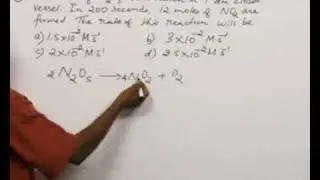 vessel. In 200 seconds, 12 moles of NO₂ are
formed. The rate of this reaction will be
a) 1.5x10⁻² M s⁻¹ b) 3x10⁻² M s⁻¹
c) 2x10⁻² M s⁻¹ d) 2.5x10⁻² M s⁻¹
2 N₂O₅ ⟶ O₂ + O₂